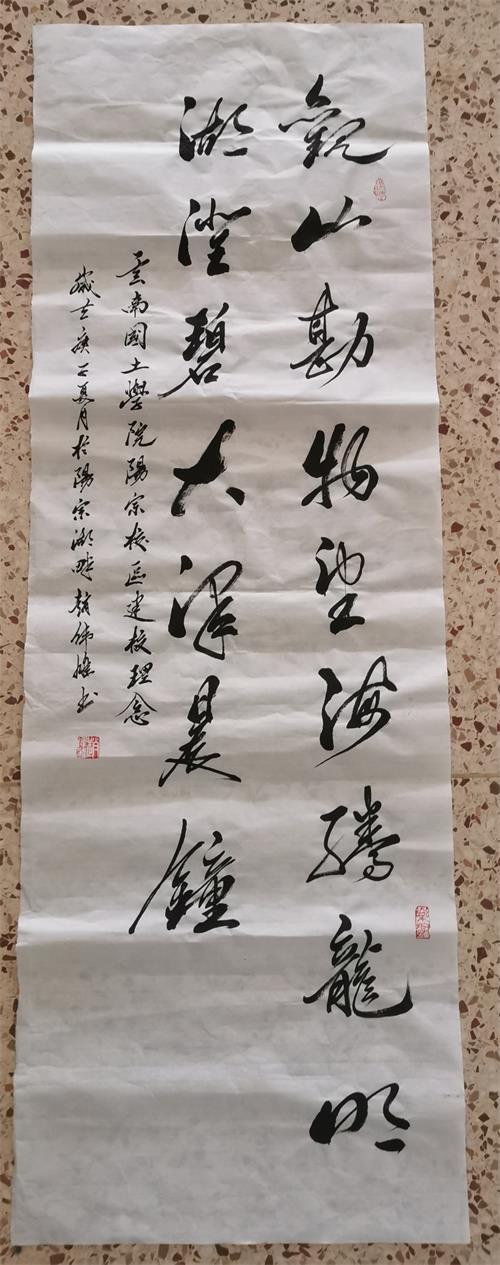 觀山勘物望海騰龍明
湖澄碧大澤晨鐘
雲南國土學院陽宗校区建校理念
歲在庚子夏月於陽宗湖畔趙偉書